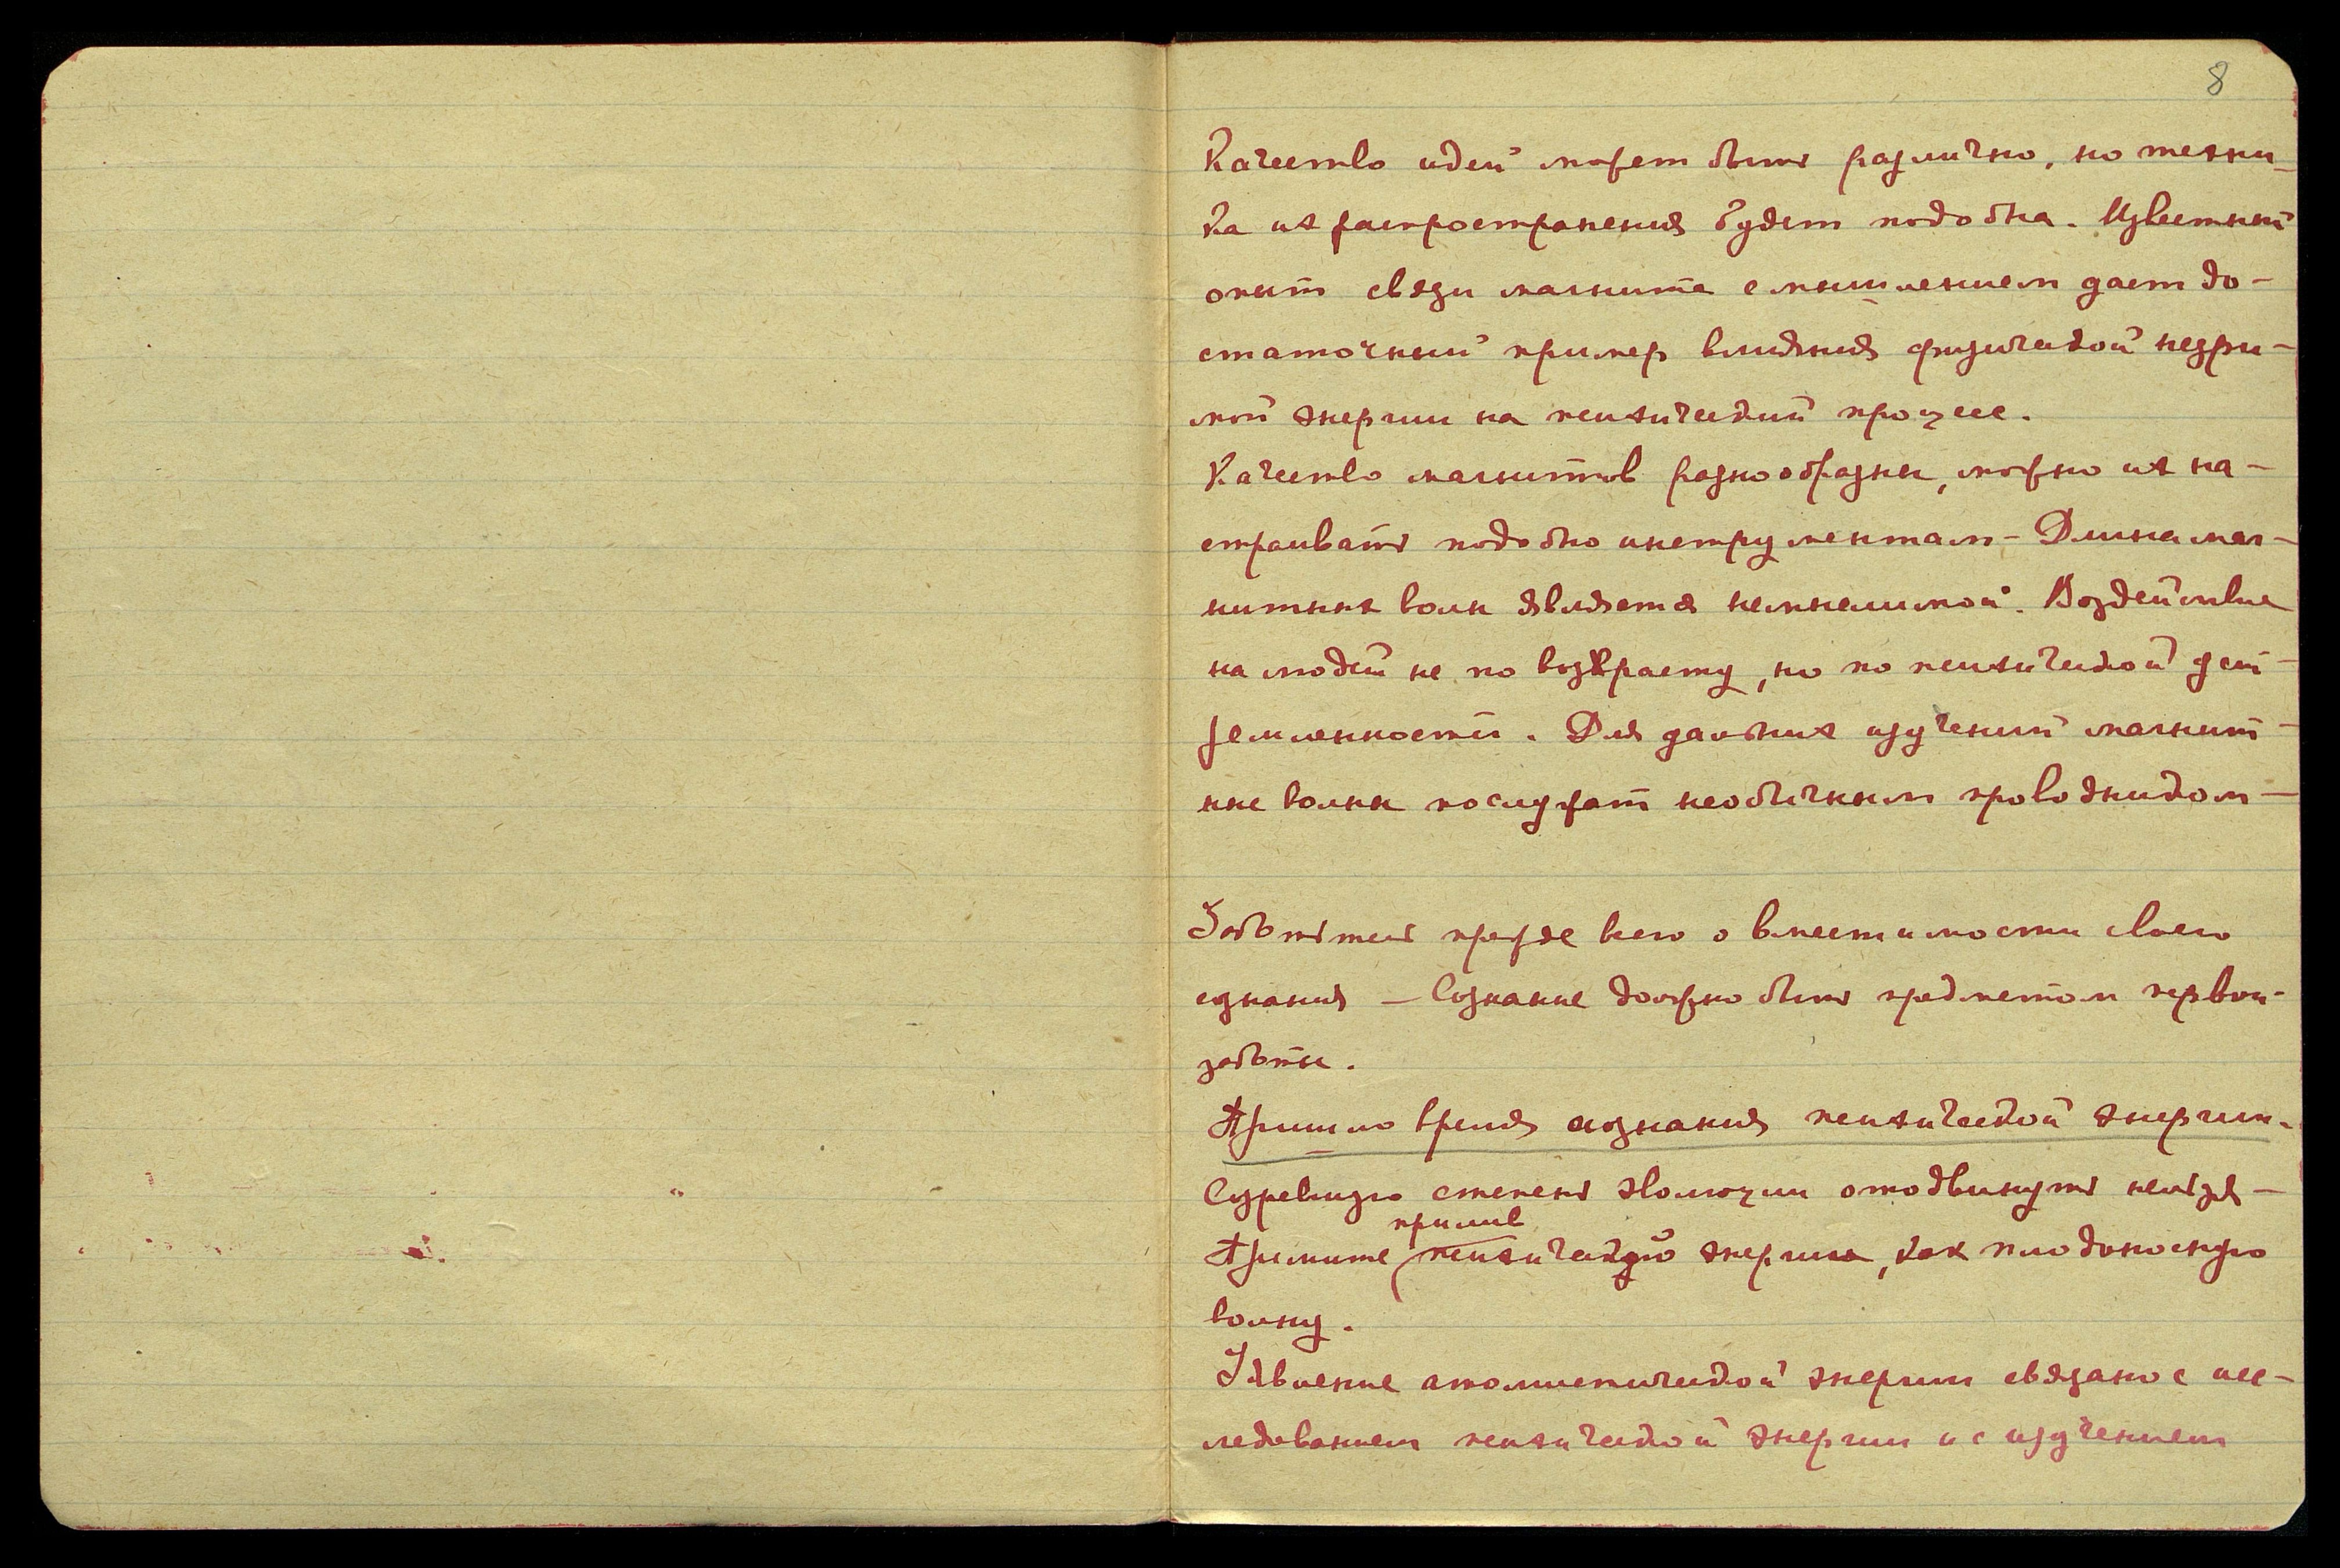 8
Качество идей может быть различно, но техни-
ка их распространения будет подобна. Известный
опыт связи магнита с мышлением дает до-
статочный пример влияния физической незри-
мой энергии на психический процесс.
Качество магнитов разнообразны, можно их на-
страивать подобно инструментам – Длина маг-
нитных волн является неизмеримой. Воздействие
на людей не по возврасту, но по психической
Для дальних изучений магнит-
ные волны послужат необычным проводником –
Заботьтесь прежде всего о вместимости своего
сознания – Сознание должно быть предметом первой
заботы.
Пришло время сознания психической энергии.
Суревную степень эволюции отодвинуть нельзя –
прилив
Примите психическую энергию, как плодоносную
волну.
Уявление атомистической энергии связано с исс-
ледованием психической энергии и с изучением